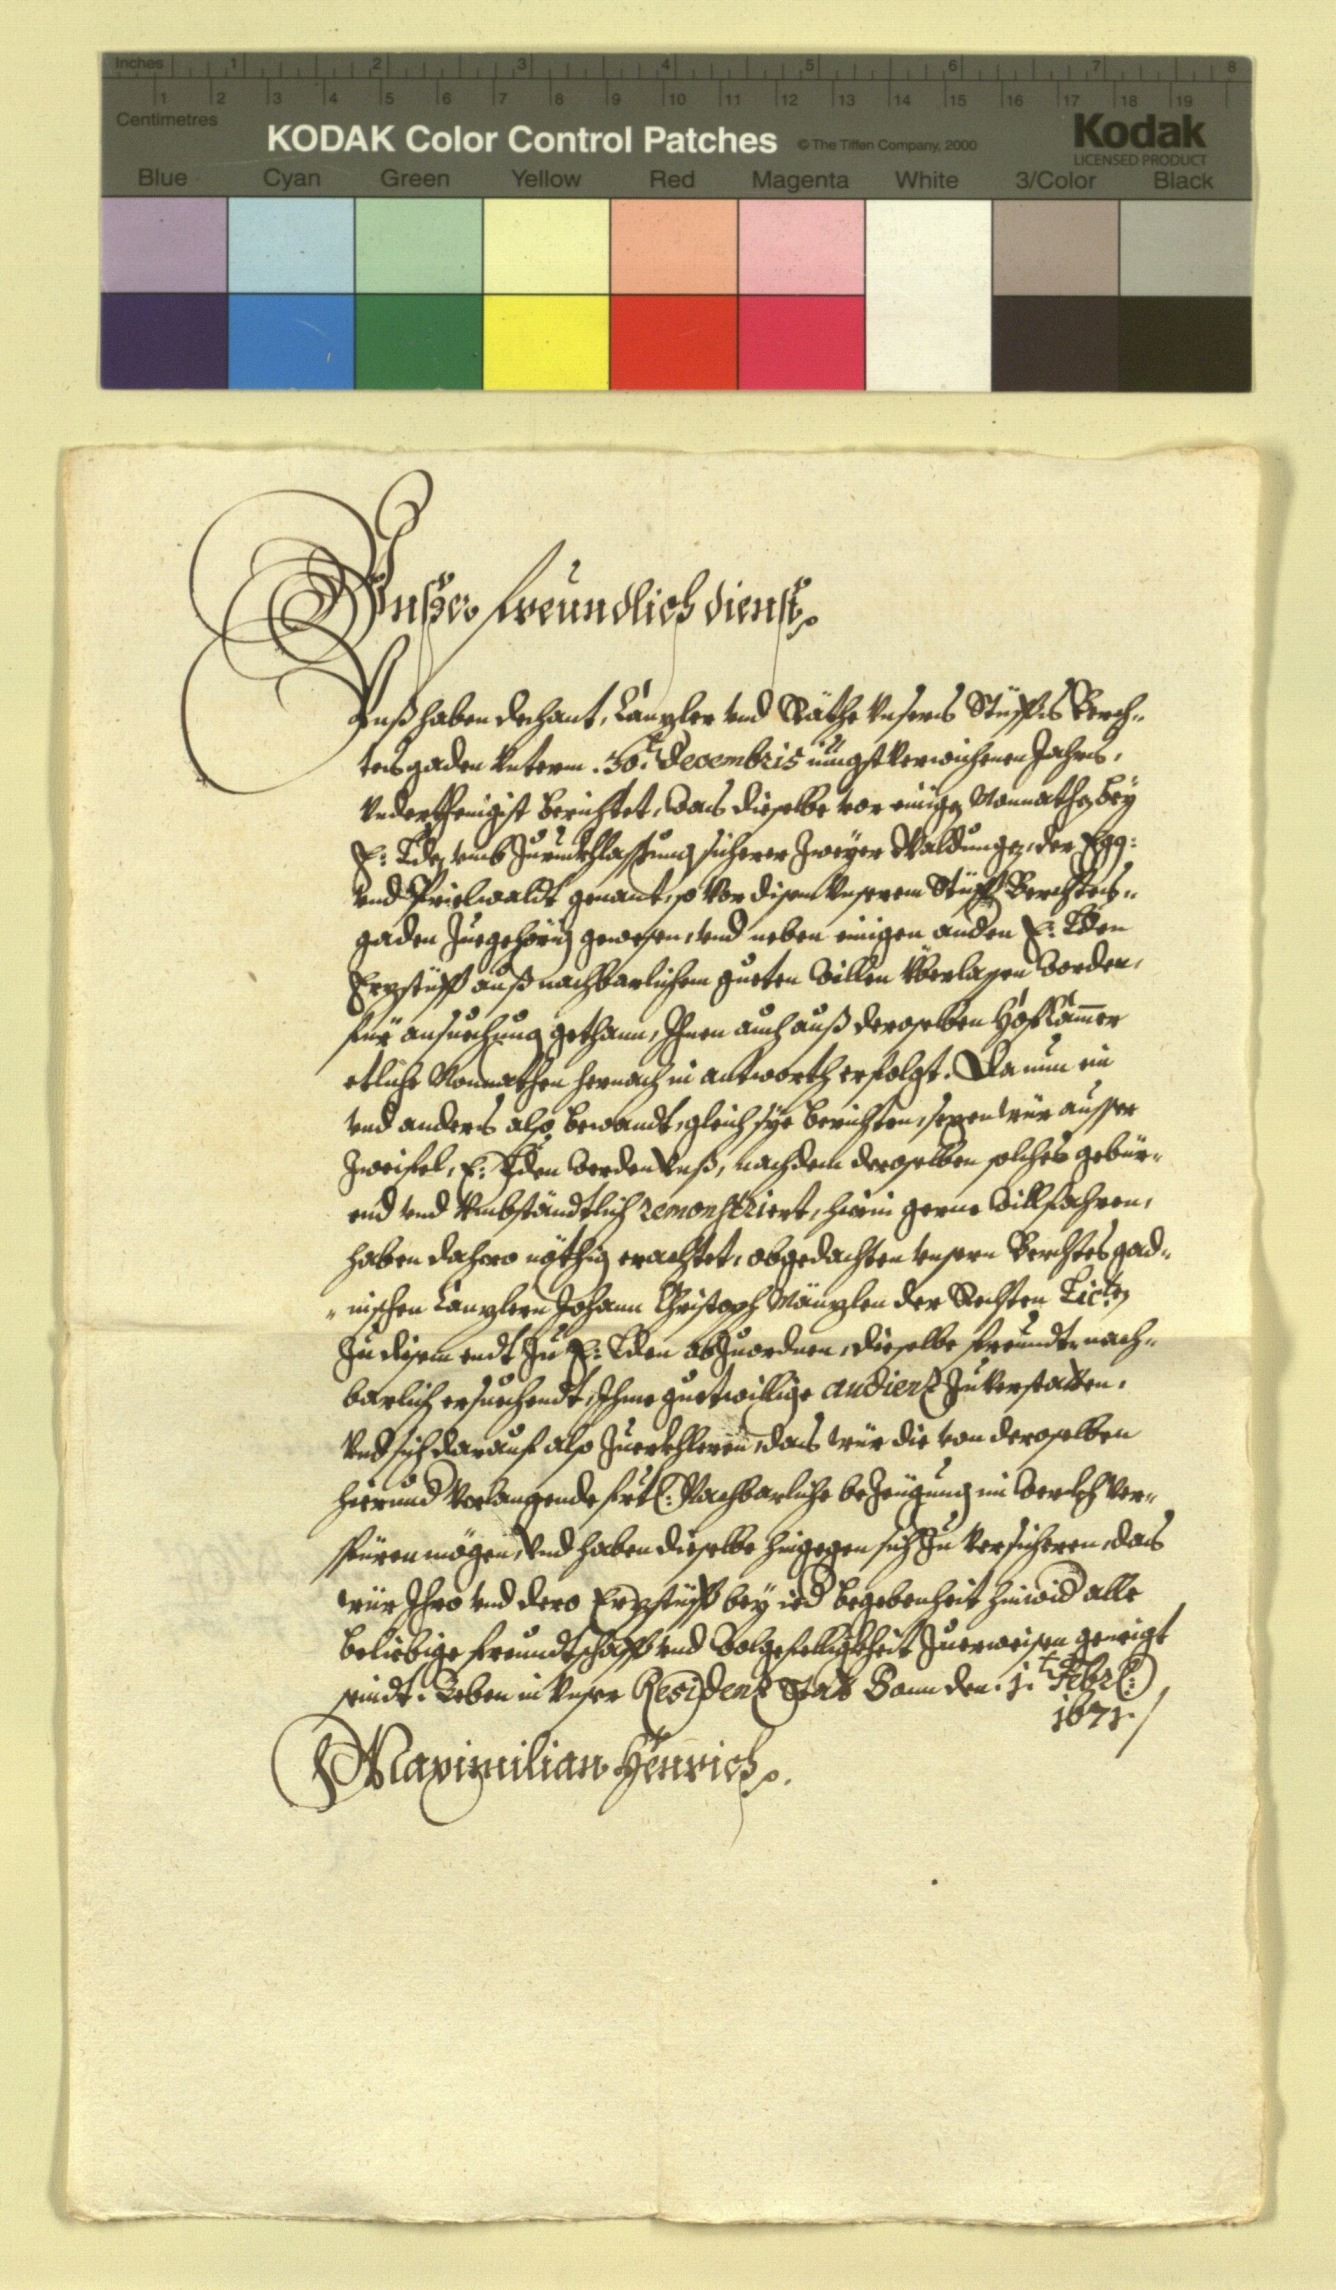 Inches 1 2 3 4 5 6 7 8
1 2 3 4 5 6 7 8 9 10 11 12 13 14 15 16 17 18 19
Centimetres
KODAK Color Control Patches © The Tiffen Company, 2000 Kodak
LICENSED PRODUCT
Blue Cyan Green Yellow Red Magenta White 3/Color Black
Vnßer freundlich dienst
Vnß haben dechant, Canzler vnd Räthe vnsers Stüffts Berch-
tesgaden vnterm .30.t decembris iüngst verwichenen Jahrs,
vnderthenigist berichtet, das dieselbe vor einigen Monnathen bey
E: Lden vmb Zuruckhlassung sicherer Zweyer Waldungen, der Egg:
vnd Prielwaldt genant, so vor disem vnserem Stüfft Berchtess-
gaden Zuegehörig gewesen, vnd neben einigen andern E: Lden
Erzstüfft auß nachbarlichem gueten willen überlassen worden,
für ansuechung gethann, Ihnen auch auß deroselben Hofcammer
etliche Monnathen hernach in antworth erfolgt. Da nun ein
vnd anders also bewandt, gleich sye berichten, sezen wür ausser
Zweifel, E: Lden werden vnß, nachdem deroselben solches gebür-
end vnd vmbständtlich remonstriert, hierin gerne willfahren,
haben dahero nöthig erachtet, obgedachten vnsern Berchtesgad-
nischen Canzlern Johann Christoph Mänzlen der Rechten Licten
Zu disem endt Zu E: Lden abZuordnen, dieselbe freundt- nach-
barlich ersuechendt, Ihme guetwillige audienz Zuverstatten,
vnd sich darauf also Zuerkhleren, das wür die von deroselben
hierund verlangende frtl: Nachbarliche beZeugung im werckh ver-
spüren mögen, vnd haben dieselbe hingegen sich Zu versicheren, das
wür Ihro vnd dero Erzstüfft bey ied begebenheit hinwid alle
beliebige freundtschafft vnd wolgefelligkheit Zuerweisen geneigt
seindt. Geben in vnser Residenz Statt Bonn den .1.t Febr:
1671.
Maximilian Henrich